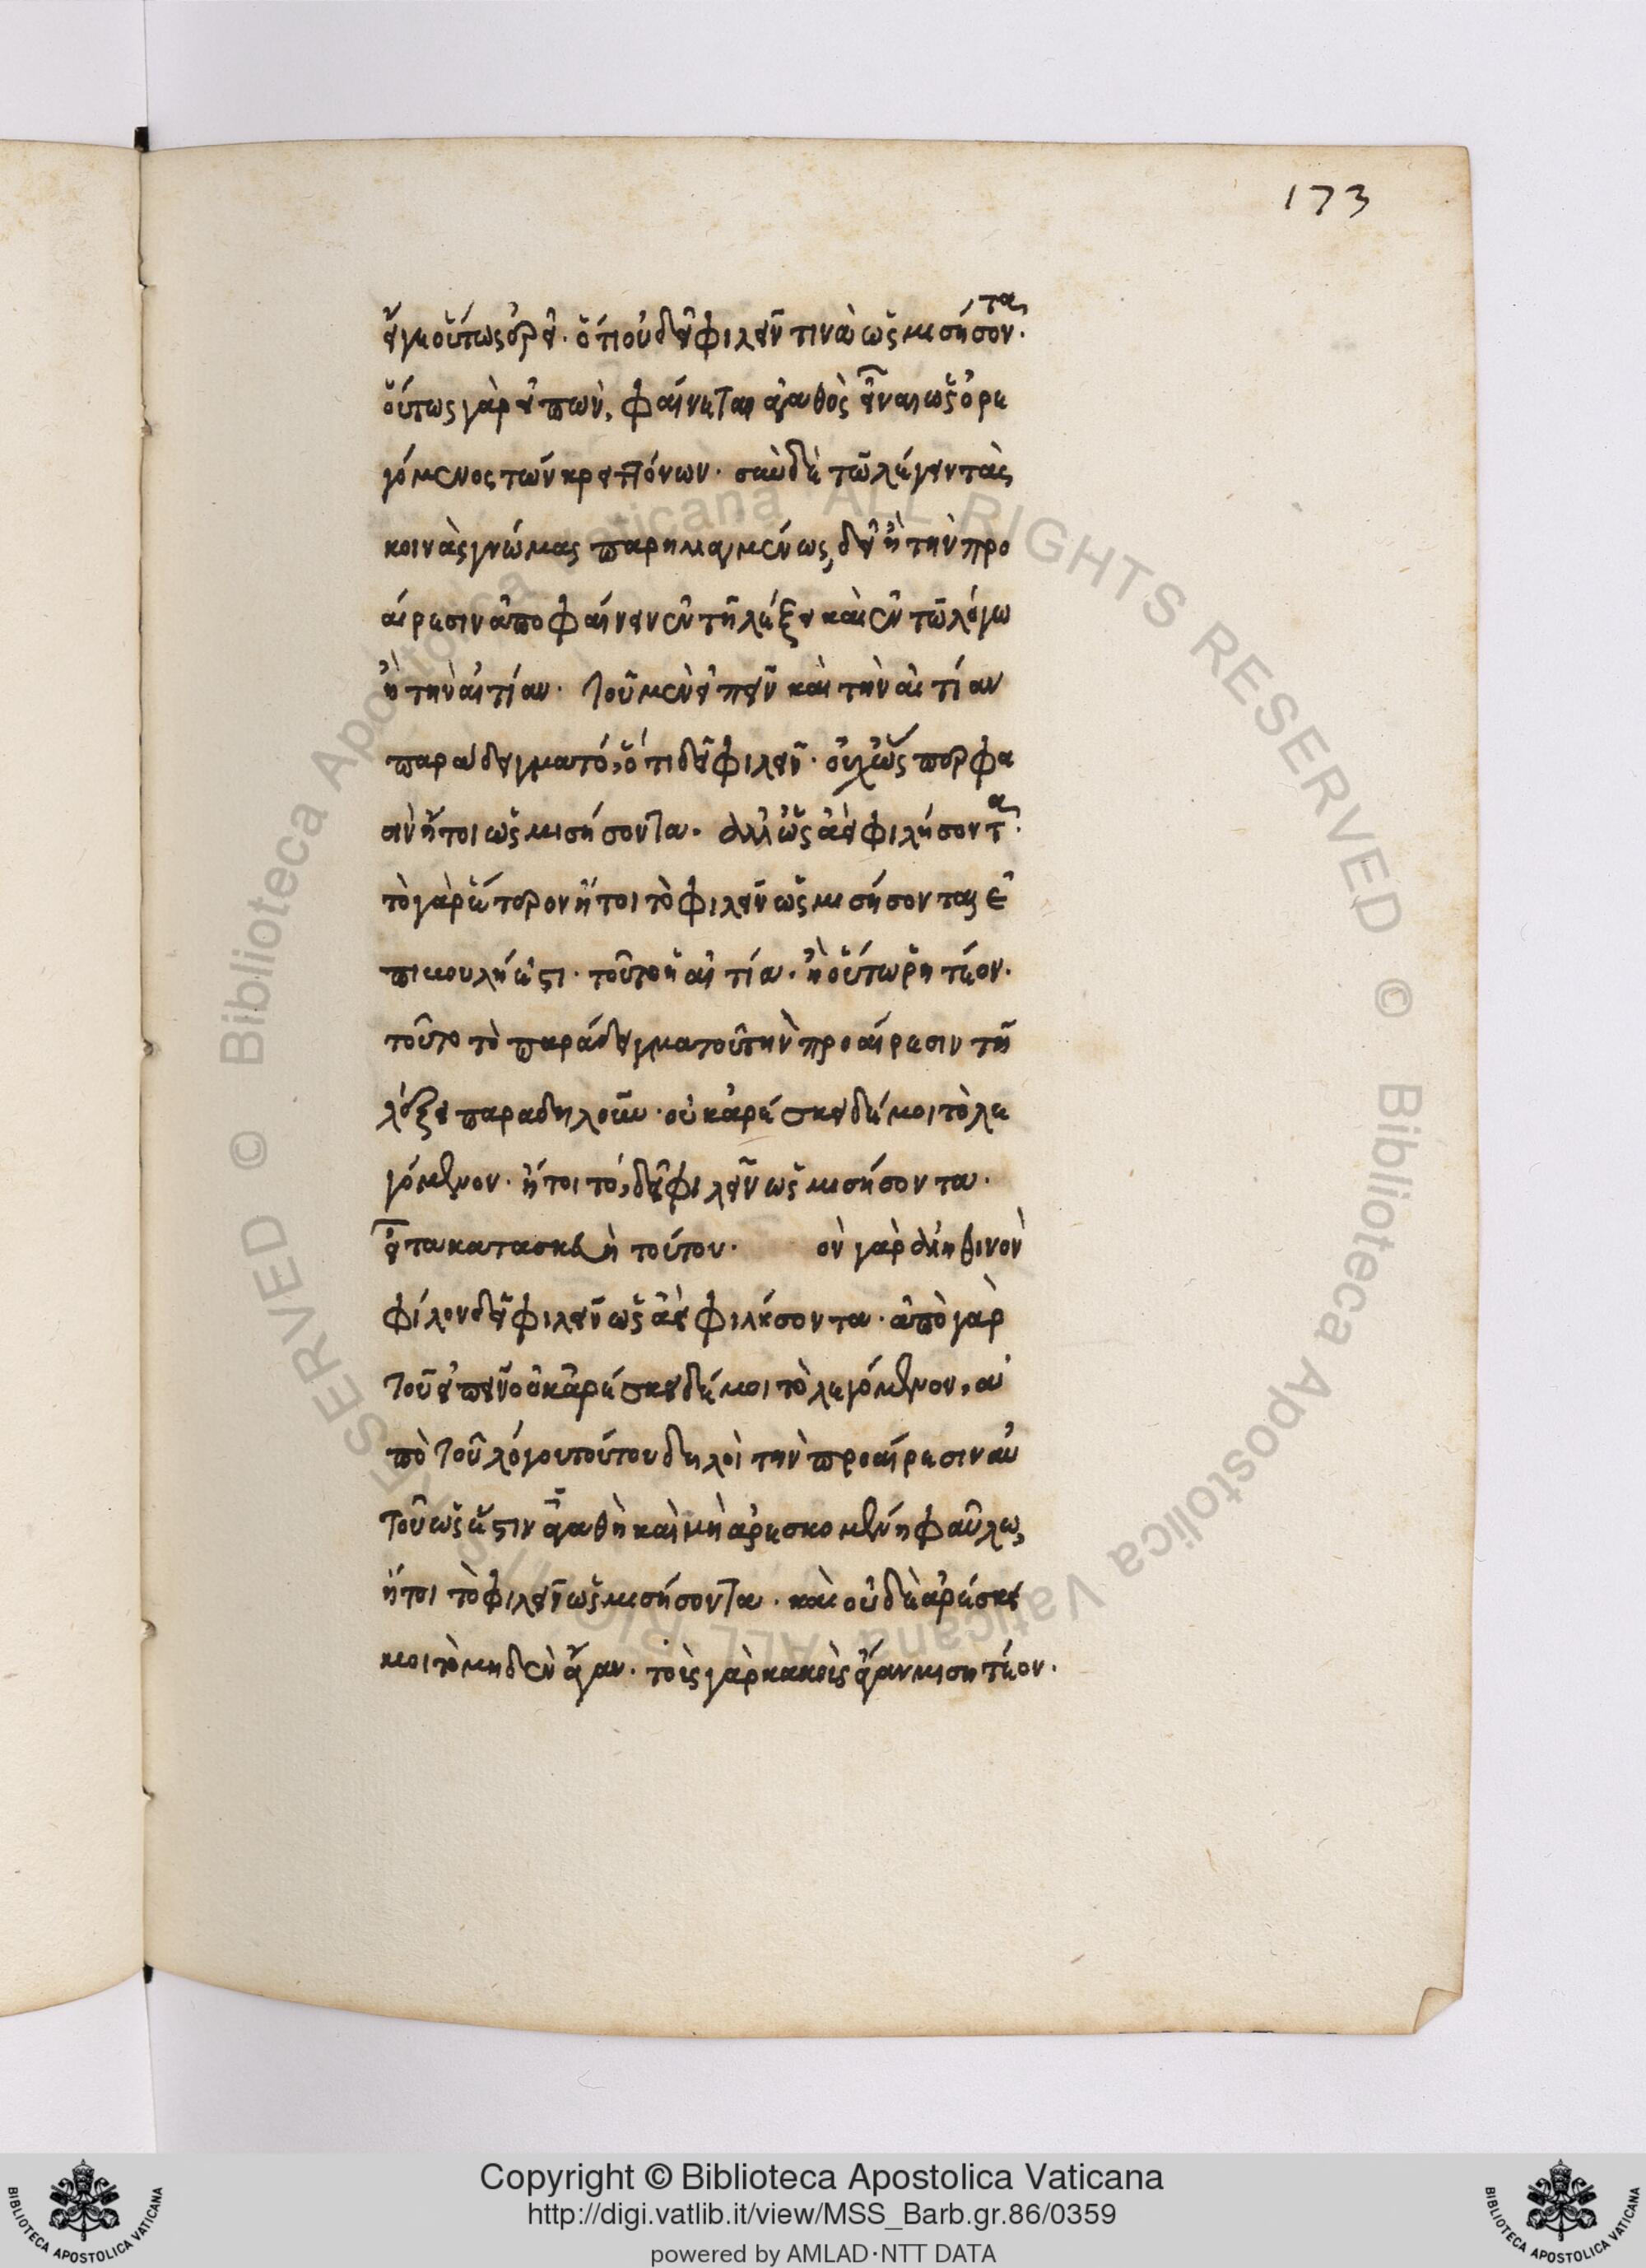 173
εἴγε οὕτως ἐρεῖ. ὅτι οὐ δεῖ φιλεῖν τινὰ ὡς μισήσοντα.
οὕτως γὰρ εἰπὼν, φαίνεται ἀγαθὸς εἶναι ὡς ὀρε
γόμενος τῶν κρειττόνων. σαὺ δὲ τῶ λέγειν τὰς
κοινὰς γνώμας παρηλλαγμένως, δεῖ ἢ τὴν προ
αίρεσιν ἀποφαίνειν ἐν τῇ λέξει καὶ ἐν τῶ λόγω
ἢ τὴν αἰτίαν. τοῦ μὲν εἰπεῖν καὶ τὴν αἰτίαν
παράδειγμα τό, ὅτι δεῖ φιλεῖν. οὐχ ὥς περ φα
σὶν ἤτοι ὡς μισήσοντα. ἀλλ' ὡς ἀεὶ φιλήσοντα.
τὸ γὰρ ἕτερον ἤτοι τὸ φιλεῖν ὡς μισήσοντας ἐ
πιβουλή ἐστι. τοῦτο ἡ αἰτία. ἢ οὕτω ῥητέον.
τοῦτο τὸ παράδειγμα τοῦ τὴν προαίρεσιν τῇ
λέξει παραδηλοῦν. οὐκ ἀρέσκει δέ μοι τὸ λε
γόμενον. ἤτοι τό, δεῖ φιλεῖν ὡς μισήσοντα.
εἶτα κατασκευὴ τούτου. ὃν γὰρ ἀληθινὸν
φίλον δεῖ φιλεῖν ὡς ἀεὶ φιλήσοντα. ἀπὸ γὰρ
τοῦ εἰπεῖν οὐκ ἀρέσκει δέ μοι τὸ λεγόμενον, ἀ
πὸ τοῦ λόγου τούτου δηλοῖ τὴν προαίρεσιν αὐ
τοῦ ὡς ἔστιν ἀγαθὴ καὶ μὴ ἀρεσκομένη φαύλως
ἤτοι τὸ φιλεῖν ὡς μισήσοντα. καὶ οὐδὲ ἀρέσκει
μοι τὸ μηδὲν ἄγαν. τοῖς γὰρ κακοῖς ἄγαν μισητέον.
Copyright © Biblioteca Apostolica Vaticana
http://digi.vatlib.it/view/MSS_Barb.gr.86/0359
powered by AMLAD·NTT DATA